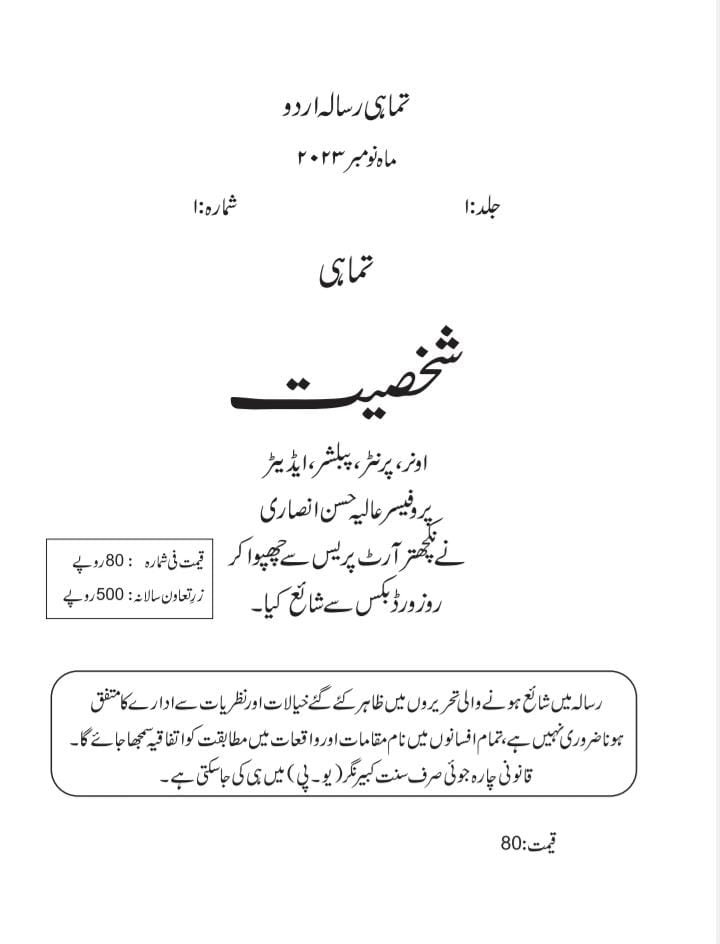 تماہی رسالہ اردو
ماہ نومبر ۲۰۲۳
جلد:۱ شمارہ:۱
تماہی
شخصیت
اونر، پرنٹر، پبلشر، ایڈیٹر
پروفیسر عالیہ حسن انصاری
نے نچھتر آرٹ پریس سے چھپوا کر
روزورڈ بکس سے شائع کیا۔
قیمت فی شمارہ : 80 روپے
زرِتعاون سالانہ: 500 روپے
رسالہ میں شائع ہونے والی تحریروں میں ظاہر کئے گئے خیالات اور نظریات سے ادارے کا متفق
ہونا ضروری نہیں ہے، تمام افسانوں میں نام مقامات اور واقعات میں مطابقت کو اتفاقیہ سمجھا جائے گا۔
قانونی چارہ جوئی صرف سنت کبیر نگر (یو۔پی) میں ہی کی جاسکتی ہے۔
قیمت:80